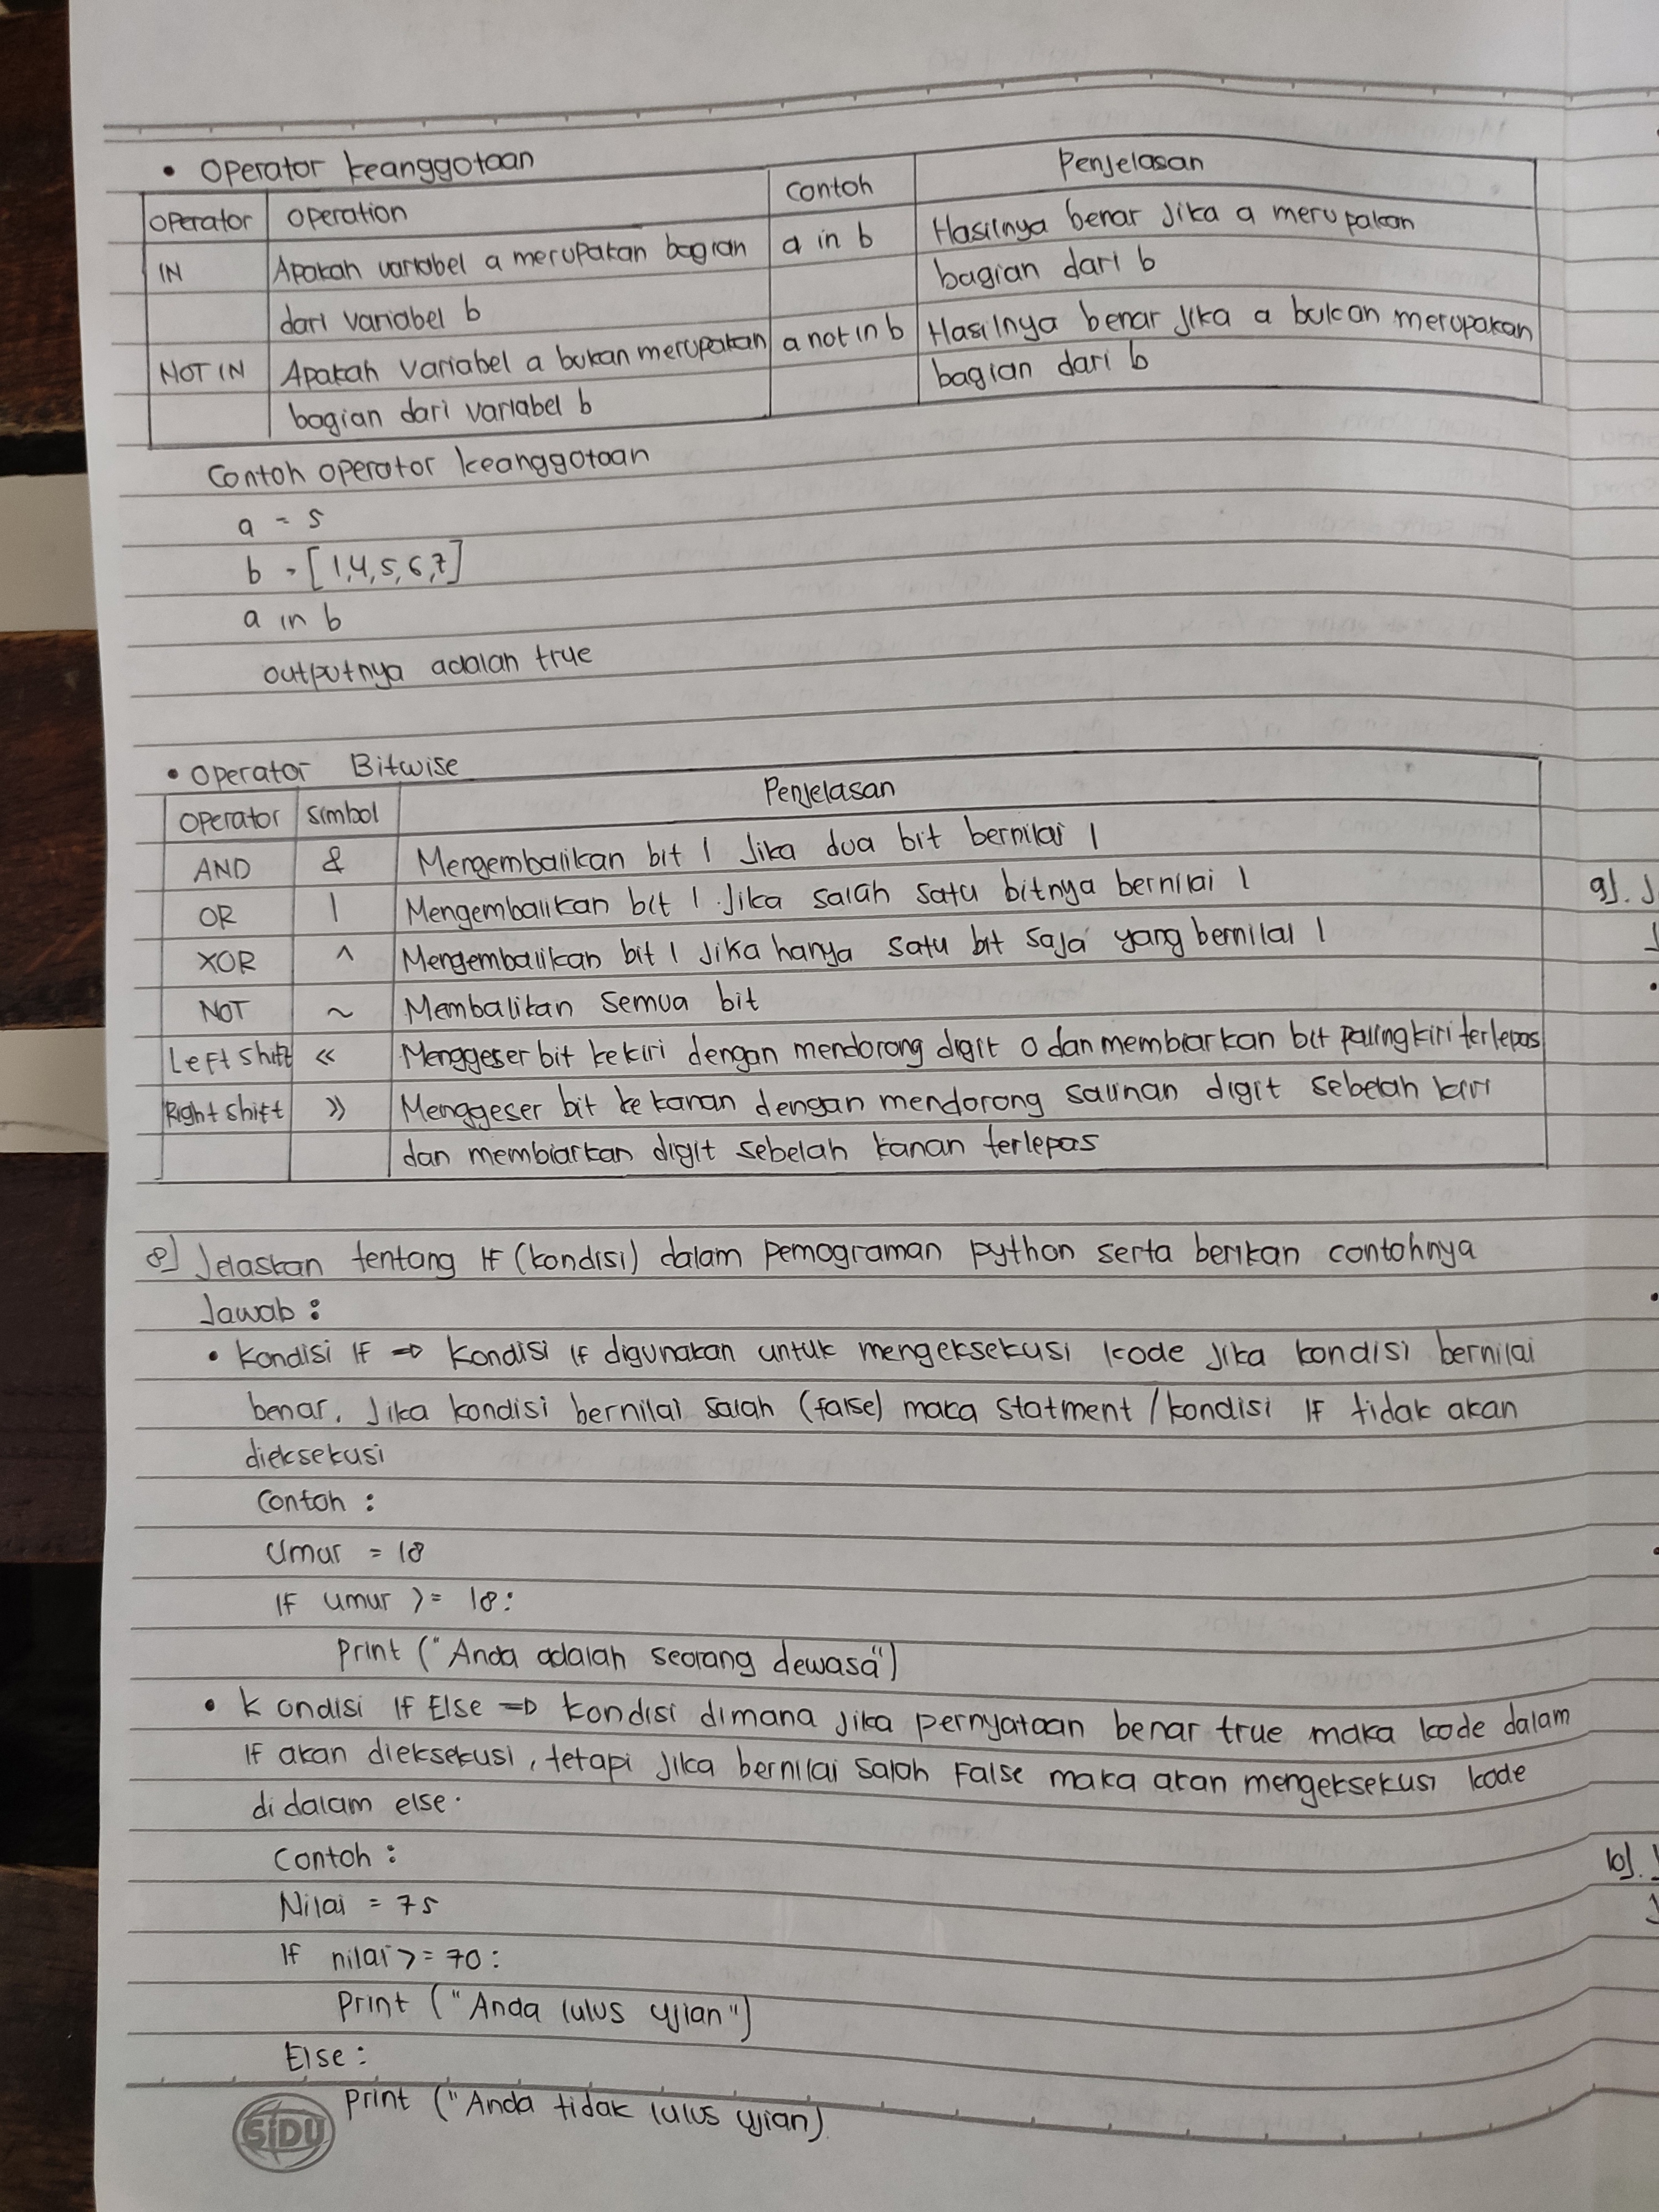 • Operator keanggotaan
Operator Operation Contoh Penjelasan
IN Apakah variabel a merupakan bagian a in b Hasilnya benar jika a merupakan
dari variabel b bagian dari b
NOT IN Apakah variabel a bukan merupakan a not in b Hasilnya benar jika a bukan merupakan
bagian dari variabel b bagian dari b
Contoh operator keanggotaan
a = 5
b = [1,4,5,6,7]
a in b
outputnya adalah true
• Operator Bitwise
Operator Simbol Penjelasan
AND & Mengembalikan bit 1 Jika dua bit bernilai 1
OR | Mengembalikan bit 1 Jika salah satu bitnya bernilai 1
XOR ^ Mengembalikan bit 1 Jika hanya satu bit saja yang bernilai 1
NOT ~ Membalikan semua bit
Left shift << Menggeser bit kekiri dengan mendorong digit 0 dan membiarkan bit paling kiri terlepas
Right shift >> Menggeser bit ke kanan dengan mendorong salinan digit sebelah kiri
dan membiarkan digit sebelah kanan terlepas
8] Jelaskan tentang If (kondisi) dalam pemograman python serta berikan contohnya
Jawab :
• Kondisi If => Kondisi If digunakan untuk mengeksekusi kode jika kondisi bernilai
benar. Jika kondisi bernilai salah (false) maka statment / kondisi If tidak akan
dieksekusi
Contoh :
Umur = 18
If umur >= 18:
Print ("Anda adalah seorang dewasa")
• Kondisi If Else => kondisi dimana jika pernyataan benar true maka kode dalam
If akan dieksekusi, tetapi jika bernilai salah False maka akan mengeksekusi kode
didalam else.
Contoh :
Nilai = 75
If nilai >= 70 :
Print ("Anda lulus ujian")
Else :
Print ("Anda tidak lulus ujian)
SiDU
9]. J
10].